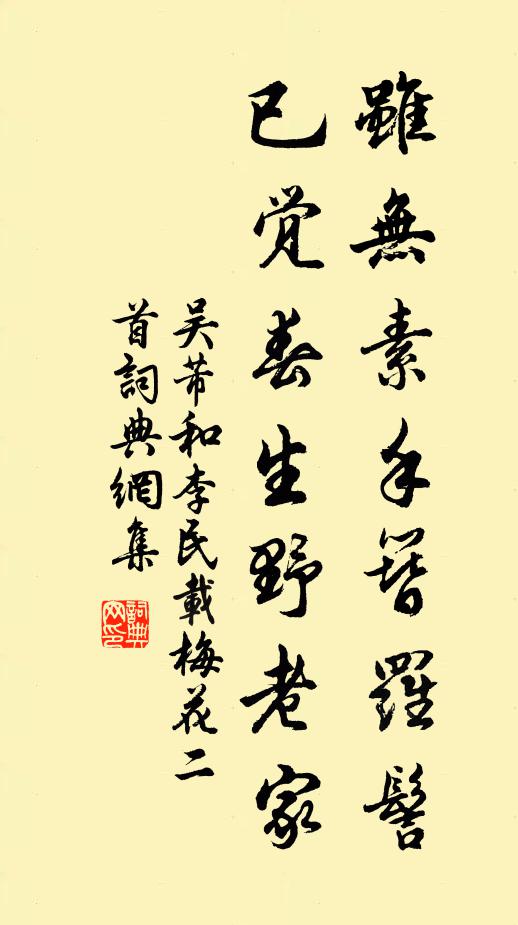 雖無素手簪羅髻
已觉春生野老家
吴芾和李民載梅花二
首詞典網集
詞典
网印